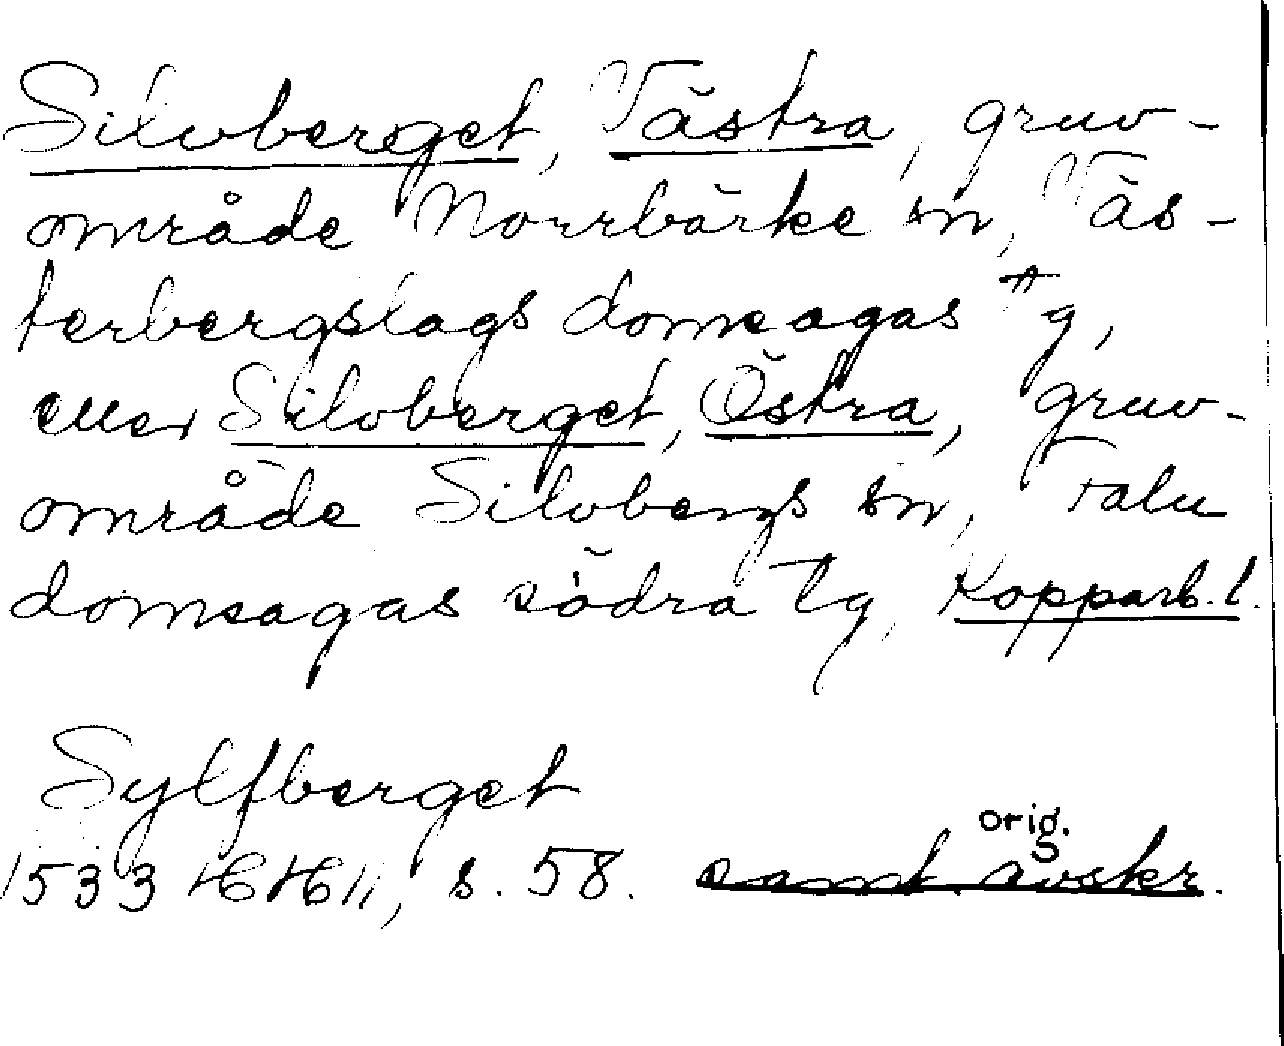 Silvberget, Västra, gruv-
område Norrbärke sn, Väs-
terbergslags domsagas tg,
eller Silvberget, Östra, gruv-
område Silvbergs sn, Falu
domsagas södra tg, Kopparb. l.
Sylfberget
orig.
1533 HH 11, s. 58. samt. avskr.